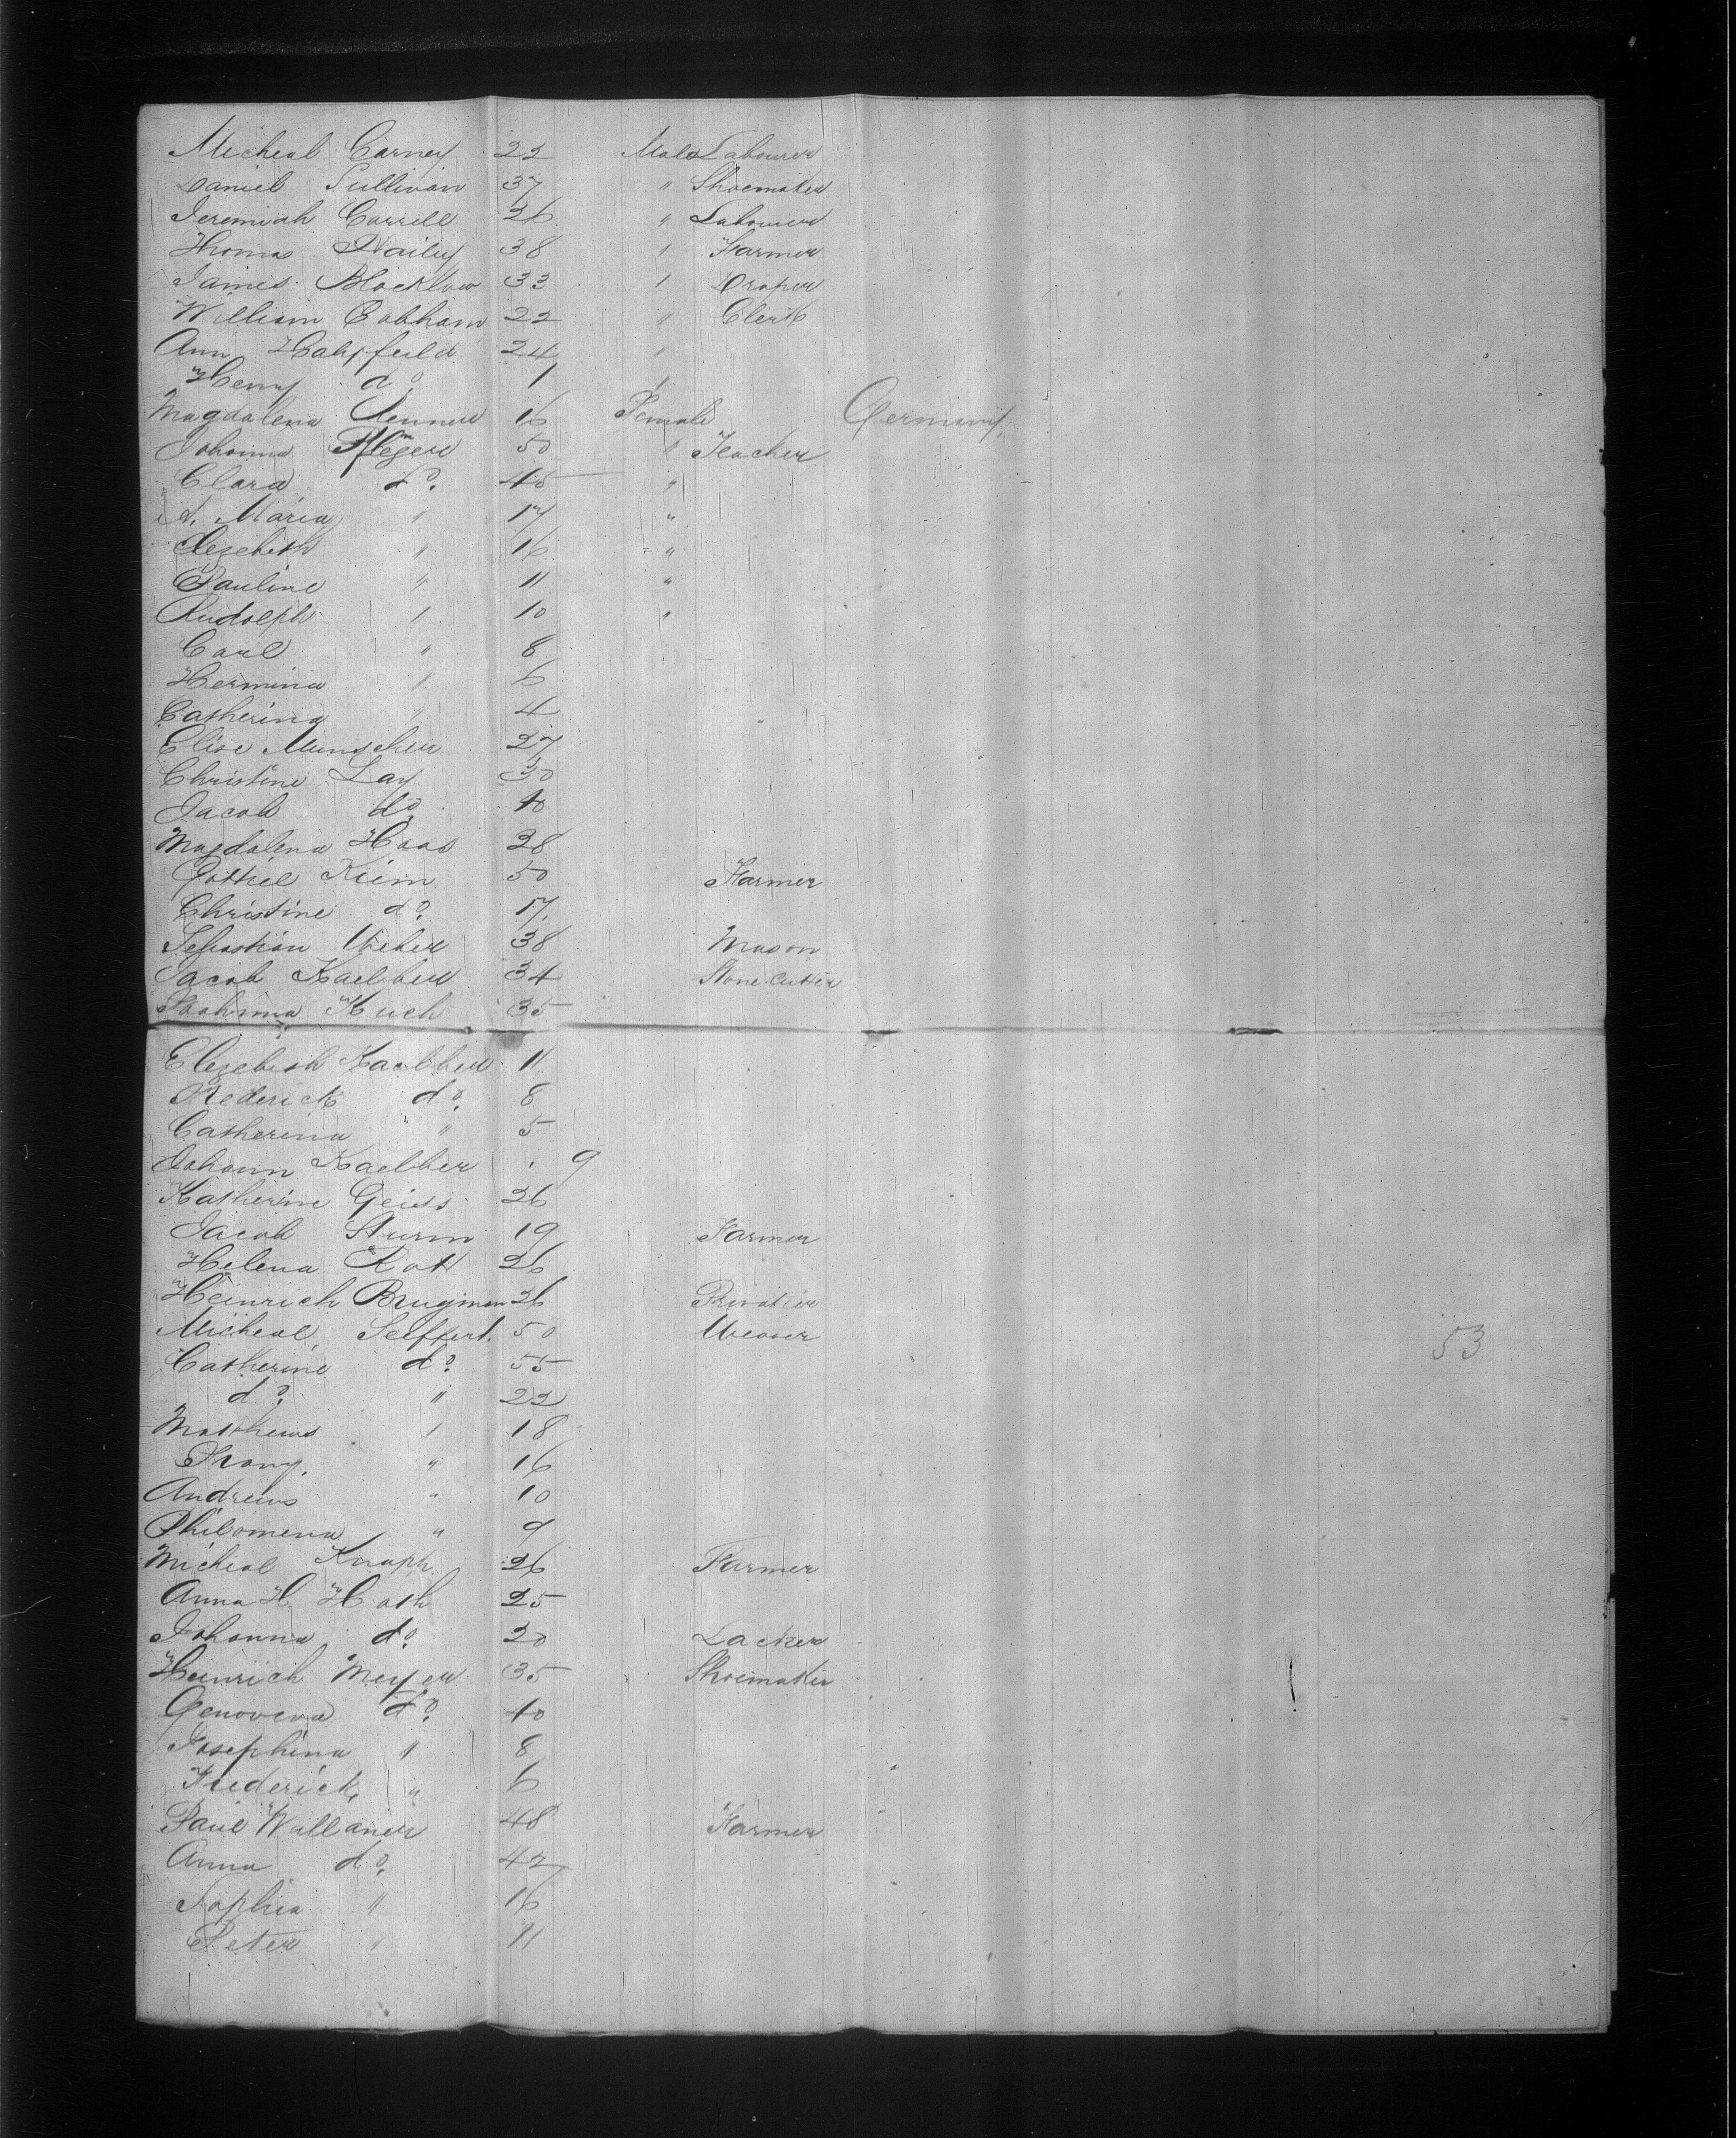 Micheal Carney 22 Male Labourer
Daniel Sullivan 37 " Shoemaker
Jeremiah Carrell 26 " Labourer
Thomas Nailey 38 " Farmer
James Blacklow 33 " Draper
William Cobham 22 " Clerk
Ann 24 "
Henry do. 1 "
Magdalena Renner 16 Female Germany
Johanna Pfleger 50 " Teacher
Clara do. 45 "
A. Maria " 17 "
Elezebeth " 16 "
Pauline " 11 "
Rudolph " 10 "
Carl " 8
Hermina " 6
Catherina " 4
Elise Munscher 27
Christine Lay 30
Jacob do. 10
Magdalena Haas 28
Gottiel Keim 50 Farmer
Christine do. 17
Sebastian Weber 38 Mason
Jacob Kaelber 34 Stone Cutter
Huch 35
Elezebeth Kaelber 11
Rederick do. 8
Catherina " 5
Johann Kaelber 9
Katherine Geiss 26
Jacob Sturm 19 Farmer
Helena Rott 26
Heinrich Brugman 26 Privatier
Micheal Seiffert 50 Weaver
Catherine do. 55
do. " 22
Matthews " 18
Franz " 16
Andreas " 10
Philomena " 9
Micheal Knaph 26 Farmer
Anna H. Hoth 25
Johanna do. 20
Heinrich Meyer 35 Shoemaker
Genoveva do. 40
Josephina " 8
Frederick " 6
Paul Wallaner 48 Farmer
Anna do. 42
Sophia " 16
Peter " 11
53